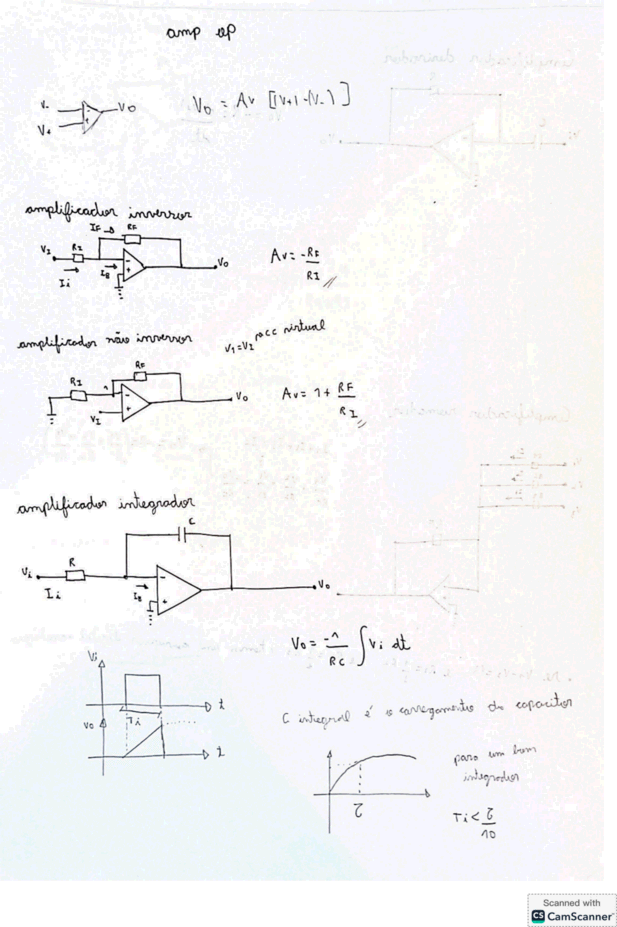 amp op
V-
V+
VO
VO = Av [(V+) - (V-)]
amplificador inversor
IF → RF
VI RI
Ii IB VO
Av = -RF
RI
amplificador não inversor
V1=VI → CC virtual
RF
RI 1
VI VO
Av = 1 + RF
RI
amplificador integrador
C
Vi R
Ii IB Vo
Vo = -1
RC ∫ Vi dt
Vi
t
Ti
Vo
t
C integral é o carregamento do capacitor
para um bom
integrador
τ
Ti < τ
10
Scanned with
CS CamScanner